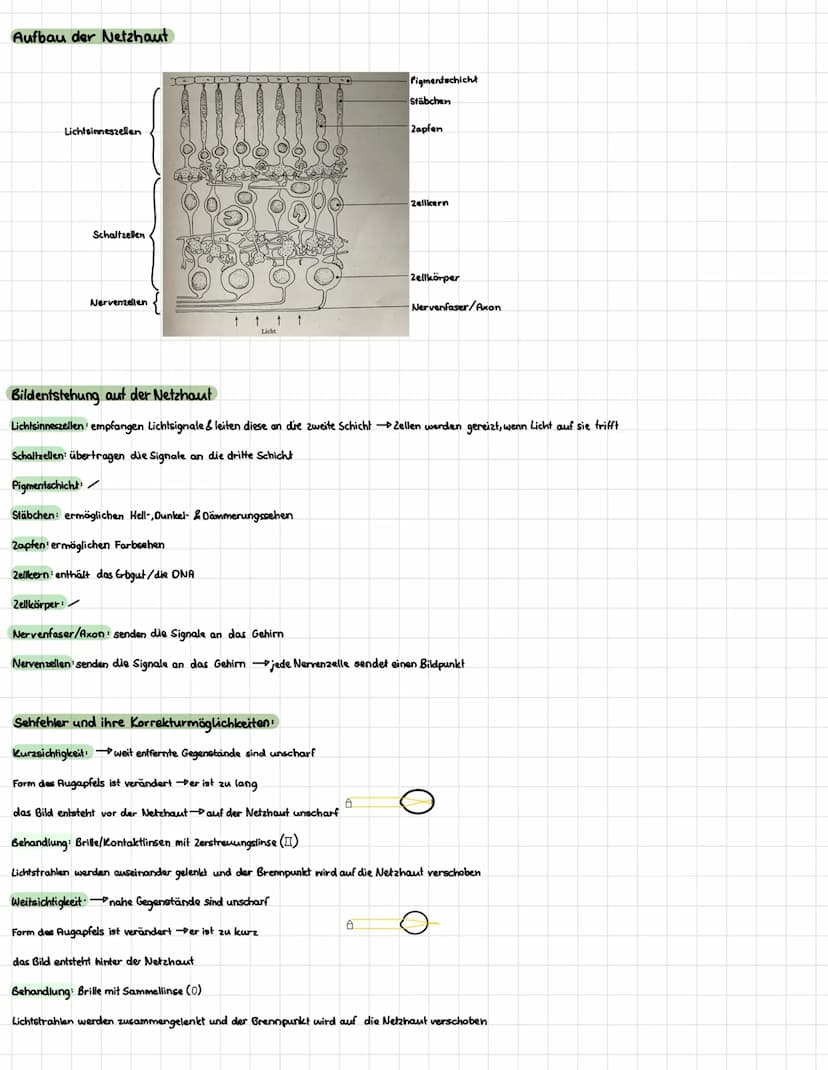 Aufbau der Netzhaut
Pigmentschicht
Stäbchen
Lichtsinneszellen
Zapfen
Zellkern
Schaltzellen
Zellkörper
Nervenzellen
Nervenfaser/Axon
Licht
Bildentstehung auf der Netzhaut
Lichtsinneszellen: empfangen Lichtsignale & leiten diese an die zweite Schicht → Zellen werden gereizt, wenn Licht auf sie trifft
Schaltzellen: übertragen die Signale an die dritte Schicht
Pigmentschicht: /
Stäbchen: ermöglichen Hell-, Dunkel- & Dämmerungssehen
Zapfen: ermöglichen Farbsehen
Zellkern: enthält das Erbgut/die DNA
Zellkörper: /
Nervenfaser/Axon: senden die Signale an das Gehirn
Nervenzellen: senden die Signale an das Gehirn → jede Nervenzelle sendet einen Bildpunkt
Sehfehler und ihre Korrekturmöglichkeiten:
Kurzsichtigkeit: → weit entfernte Gegenstände sind unscharf
Form des Augapfels ist verändert → er ist zu lang
das Bild entsteht vor der Netzhaut → auf der Netzhaut unscharf
Behandlung: Brille/Kontaktlinsen mit Zerstreuungslinse ()
Lichtstrahlen werden auseinander gelenkt und der Brennpunkt wird auf die Netzhaut verschoben
Weitsichtigkeit: → nahe Gegenstände sind unscharf
Form des Augapfels ist verändert → er ist zu kurz
das Bild entsteht hinter der Netzhaut
Behandlung: Brille mit Sammellinse ()
Lichtstrahlen werden zusammengelenkt und der Brennpunkt wird auf die Netzhaut verschoben